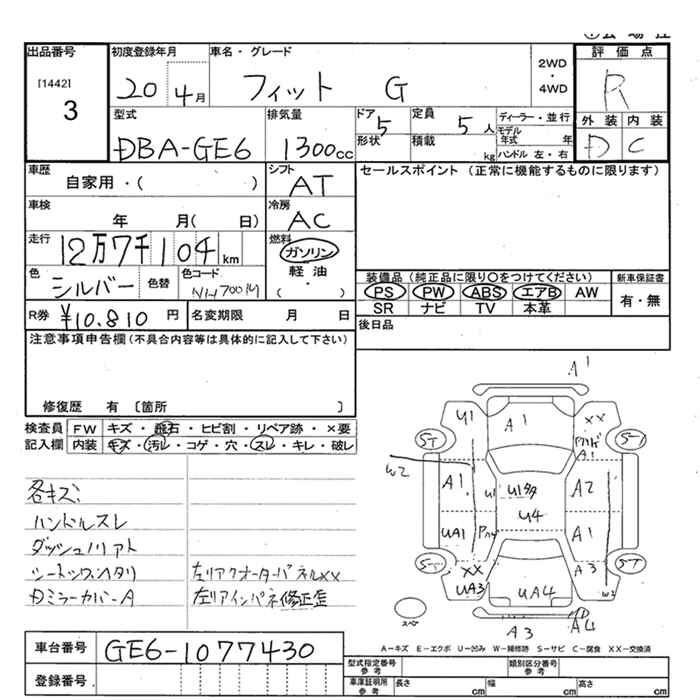 出品番号 初度登録年月 車名・グレード 評価点
[1442] 3 20 4月 フィット G 2WD・4WD R
型式 排気量 ドア 定員 ディーラー・並行 外装 内装
DBA-GE6 1300cc 5 5人 モデル年式 年 D C
形状 積載 kg ハンドル 左・右
車歴 シフト セールスポイント (正常に機能するものに限ります)
自家用・( ) AT
車検 冷房
年 月( 日) AC
走行 燃料
12万7千104km ガソリン
色 色替 色コード 軽油 装備品 (純正品に限り○をつけてください) 新車保証書
シルバー ・( ) PS PW ABS エアB AW 有・無
SR ナビ TV 本革
R券 ¥10.810円 名変期限 月 日 後日品
注意事項申告欄(不具合内容等は具体的に記入して下さい)
修復歴 有 〔箇所 〕
検査員 FW キズ・飛石・ヒビ割・リペア跡・×要
記入欄 内装 キズ・汚レ・コゲ・穴・スレ・キレ・破レ
各キズ
ハンドルスレ
ダッシュノリアト
左リアクオーターパネルXX
カミラーカバーA
左リアインパネ修正歪
A1
U1 A1 XX
ST ST
A1
W2 A1 U1 U1多 A2
U4
UA1 A1
ST XX A3 ST
UA3 UA4 W2
スペア A3 A4
A-キズ E-エクボ U-凹み W-補修跡 S-サビ C-腐食 XX-交換済
車台番号 GE6-1077430
型式指定番号 参考 類別区分番号 参考
登録番号 車庫証明用 参考 長さ cm 幅 cm 高さ cm